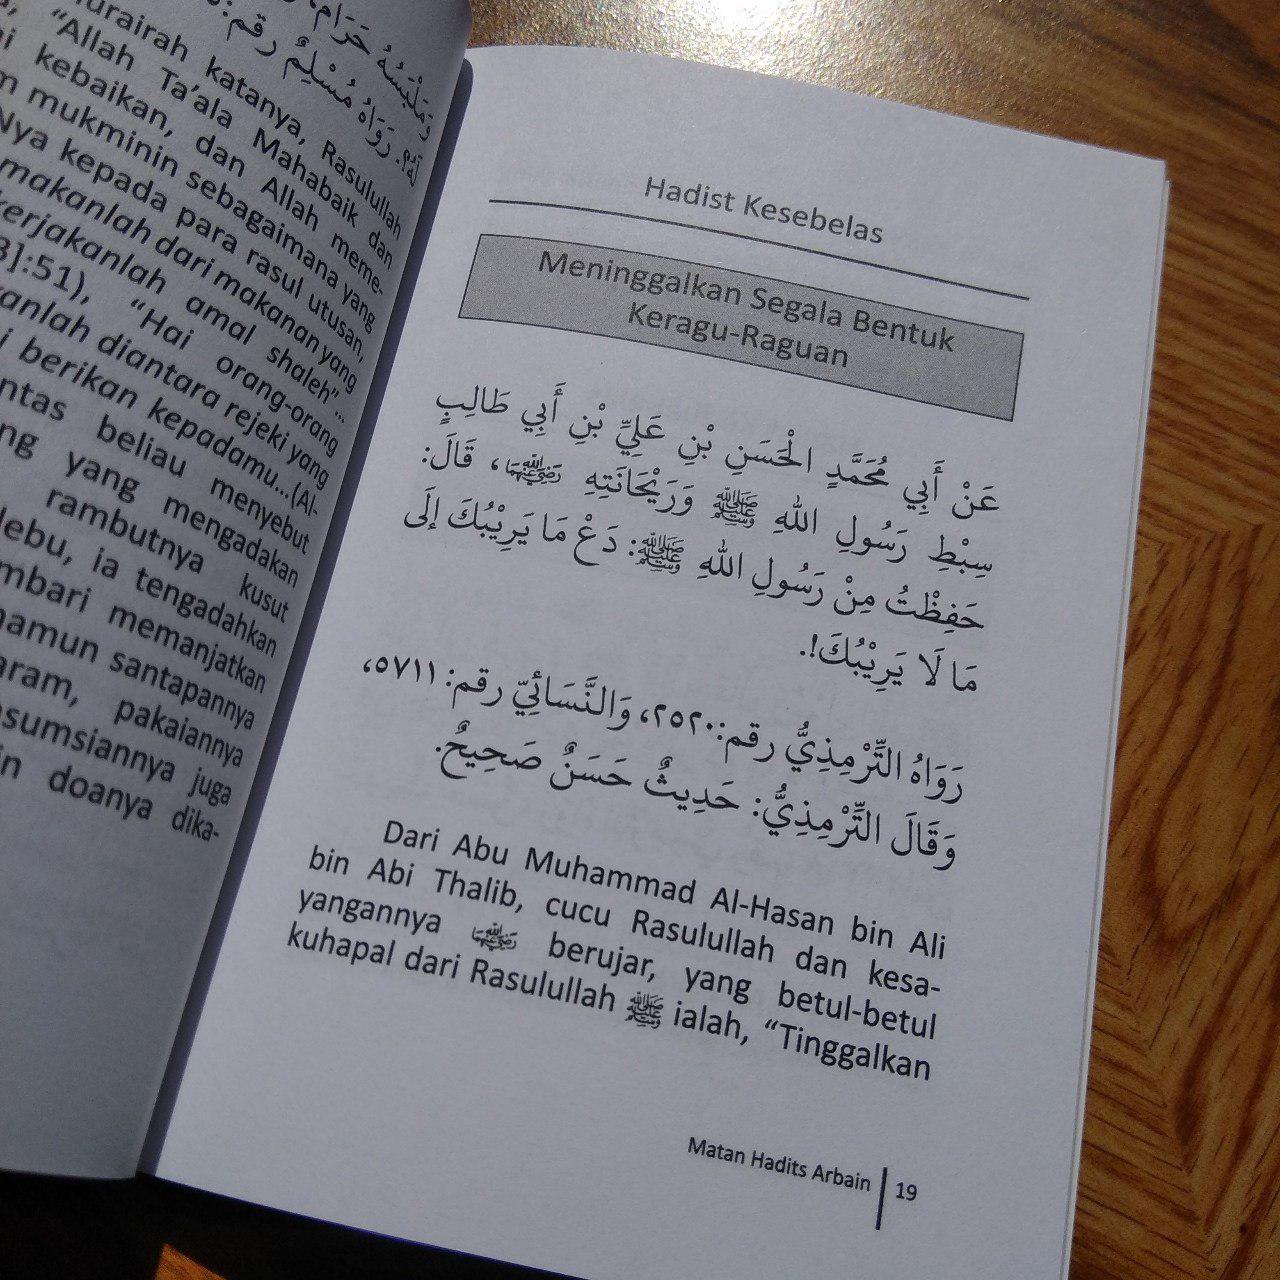 وَمَلْبَسُهُ حَرَامٌ،
رَوَاهُ مُسْلِمٌ رقم:
katanya, Rasulullah
"Allah Ta'ala Mahabaik dan
kebaikan, dan Allah meme-
mukminin sebagaimana yang
Nya kepada para rasul utusan,
makanlah dari makanan yang
kerjakanlah amal shaleh"...
:51), "Hai orang-orang
kanlah diantara rejeki yang
berikan kepadamu...(Al-
beliau menyebut
yang mengadakan
rambutnya kusut
debu, ia tengadahkan
memanjatkan
namun santapannya
pakaiannya
juga
doanya dika-
Hadist Kesebelas
Meninggalkan Segala Bentuk
Keragu-Raguan
عَنْ أَبِي مُحَمَّدٍ الْحَسَنِ بْنِ عَلِيِّ بْنِ أَبِي طَالِبٍ
سِبْطِ رَسُولِ اللهِ ﷺ وَرَيْحَانَتِهِ رَضِيَ اللهُ عَنْهُمَا، قَالَ:
حَفِظْتُ مِنْ رَسُولِ اللهِ ﷺ: دَعْ مَا يَرِيْبُكَ إِلَى
مَا لَا يَرِيْبُكَ!.
رَوَاهُ التِّرْمِذِيُّ رقم: ٢٥٢٠، وَالنَّسَائِيّ رقم: ٥٧١١،
وَقَالَ التِّرْمِذِيُّ: حَدِيثٌ حَسَنٌ صَحِيحٌ.
Dari Abu Muhammad Al-Hasan bin Ali
bin Abi Thalib, cucu Rasulullah dan kesa-
yangannya رَضِيَ اللهُ عَنْهُمَا berujar, yang betul-betul
kuhapal dari Rasulullah ﷺ ialah, "Tinggalkan
Matan Hadits Arbain | 19